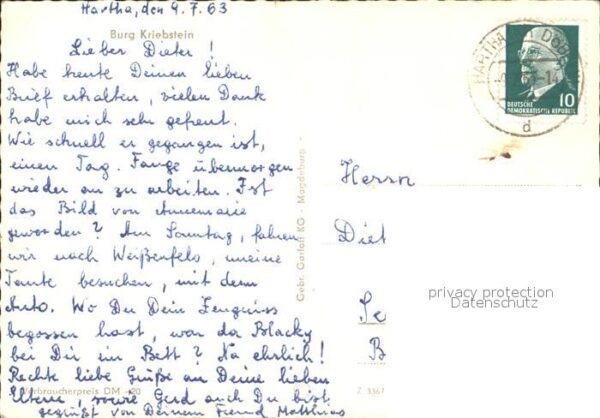 Hartha, den 9.7.63
Burg Kriebstein
Lieber Dieter!
Habe heute Deinen lieben
Brief erhalten, vielen Dank
habe mich sehr gefreut.
Wie schnell er gegangen ist,
einen Tag. Fange übermorgen
wieder an zu arbeiten. Ist
das Bild von Annemarie
geworden? Am Sonntag, fahren
wir nach Weißenfels, meine
Tante besuchen, mit dem
Auto. Wo Du Dein Zeugniss
begossen hast, war da Blacky
bei Dir im Bett? Na ehrlich!
Rechte liebe Grüße an Deine lieben
Verbraucherpreis DM -,20
sowie Gerd auch Du bist
gegrüßt von Deinem Freund Matthias
Gebr. Garloff KG - Magdeburg
Z 3367
HARTHA DÖB
d
10
DEUTSCHE
DEMOKRATISCHE REPUBLIK
Herrn
Diet
B
privacy protection
Datenschutz